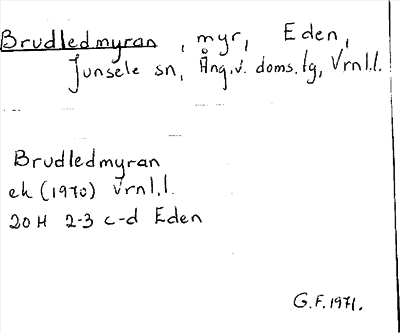 Brudledmyran, myr, Eden,
Junsele sn, Ång.v. doms.lg, Vrnl.l.
Brudledmyran
ek (1970) Vrnl.l.
20 H 2-3 c-d Eden
G.F. 1971.